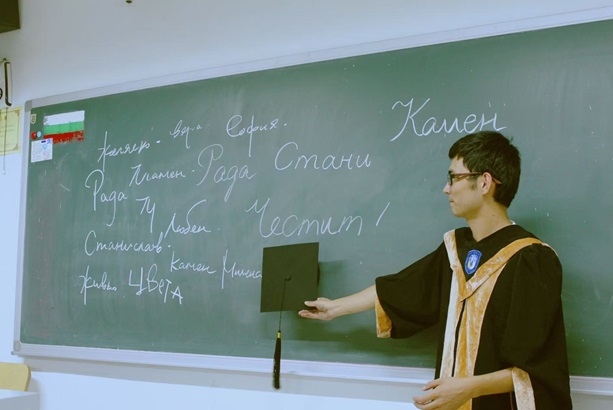 Вера София. Камен
Рада Пламен. Рада Стани
Любен. Честит!
Станислав.
Камен Милена
Живко Цвета